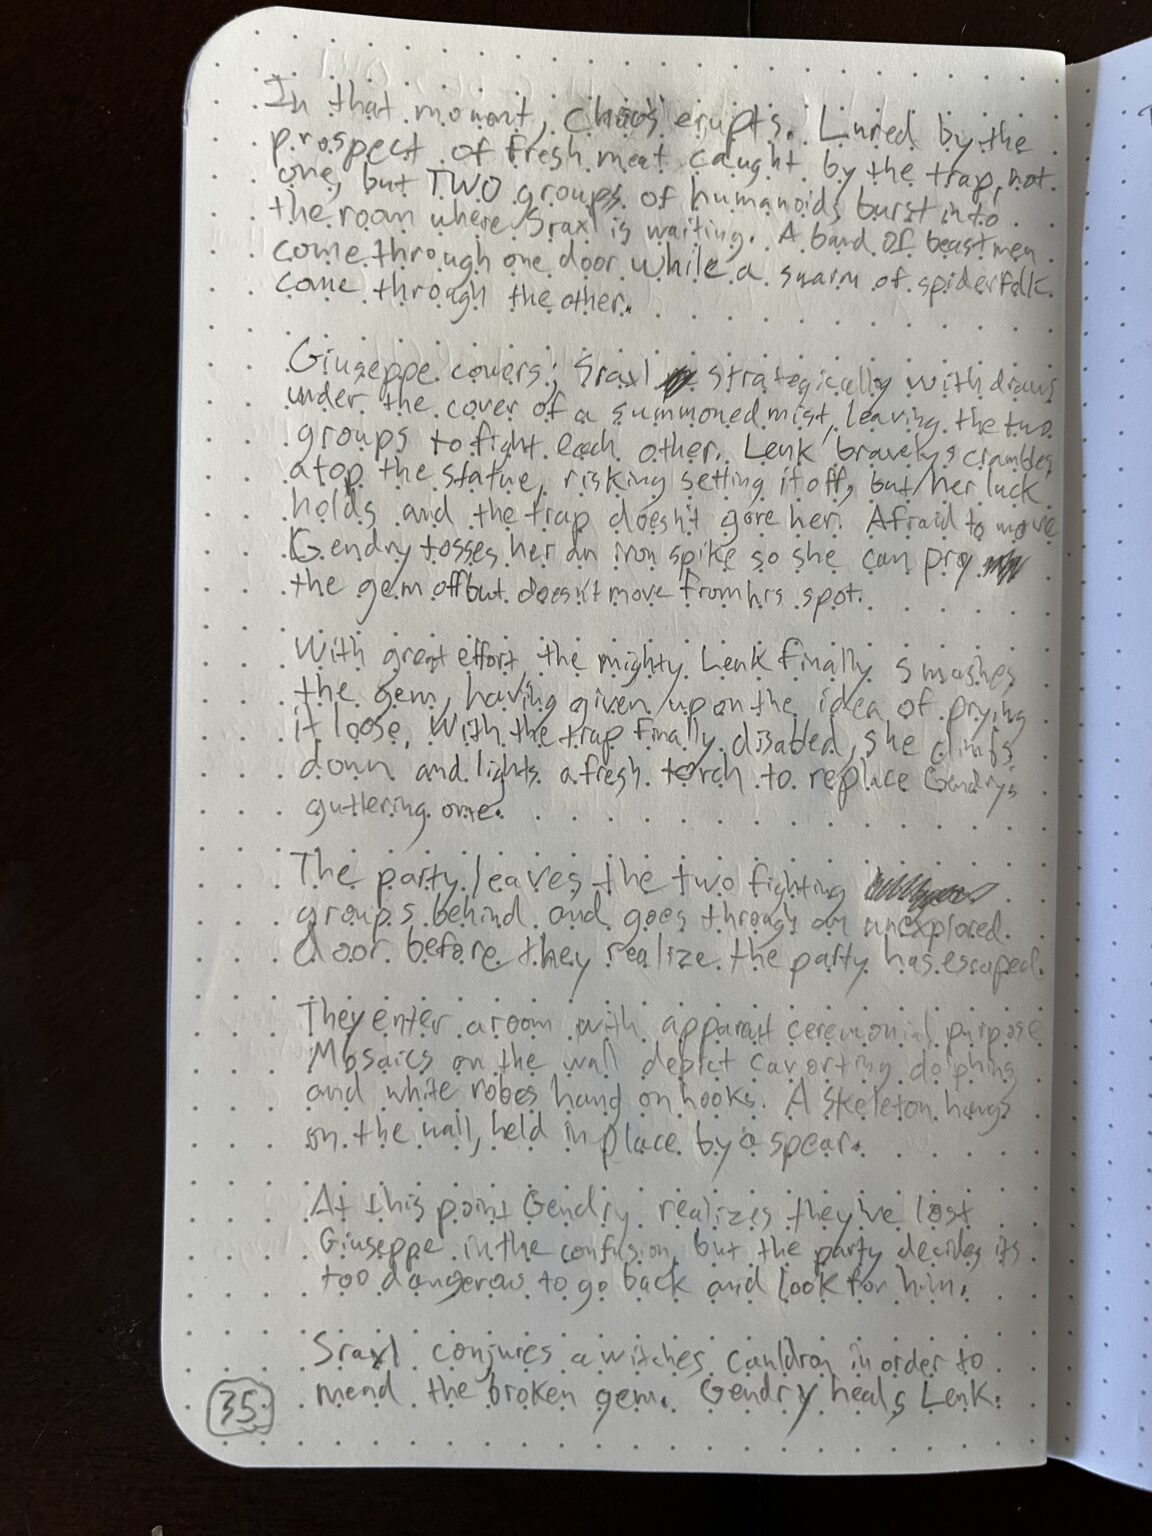 In that moment, chaos erupts. Lured by the
prospect of fresh meat caught by the trap, not
one, but TWO groups of humanoids burst into
the room where Sraxl is waiting. A band of beastmen
come through one door while a swarm of spiderfolk
come through the other.
Giuseppe cowers; Sraxl strategically withdraws
under the cover of a summoned mist, leaving the two
groups to fight each other. Lenk bravely scrambles
atop the statue, risking setting it off, but her luck
holds and the trap doesn't gore her. Afraid to move
Gendry tosses her an iron spike so she can pry
the gem off but doesn't move from his spot.
With great effort, the mighty Lenk finally smashes
the gem, having given up on the idea of prying
it loose. With the trap finally disabled, she climbs
down and lights a fresh torch to replace Gendry's
guttering one.
The party leaves the two fighting
groups behind and goes through an unexplored
door before they realize the party has escaped.
They enter a room with apparent ceremonial purpose
Mosaics on the wall depict cavorting dolphins
and white robes hand on hooks. A skeleton hangs
on the wall, held in place by a spear.
At this point Gendry realizes they've lost
Giuseppe in the confusion, but the party decides its
too dangerous to go back and look for him.
Sraxl conjures a witches cauldron in order to
mend the broken gem. Gendry heals Lenk.
35